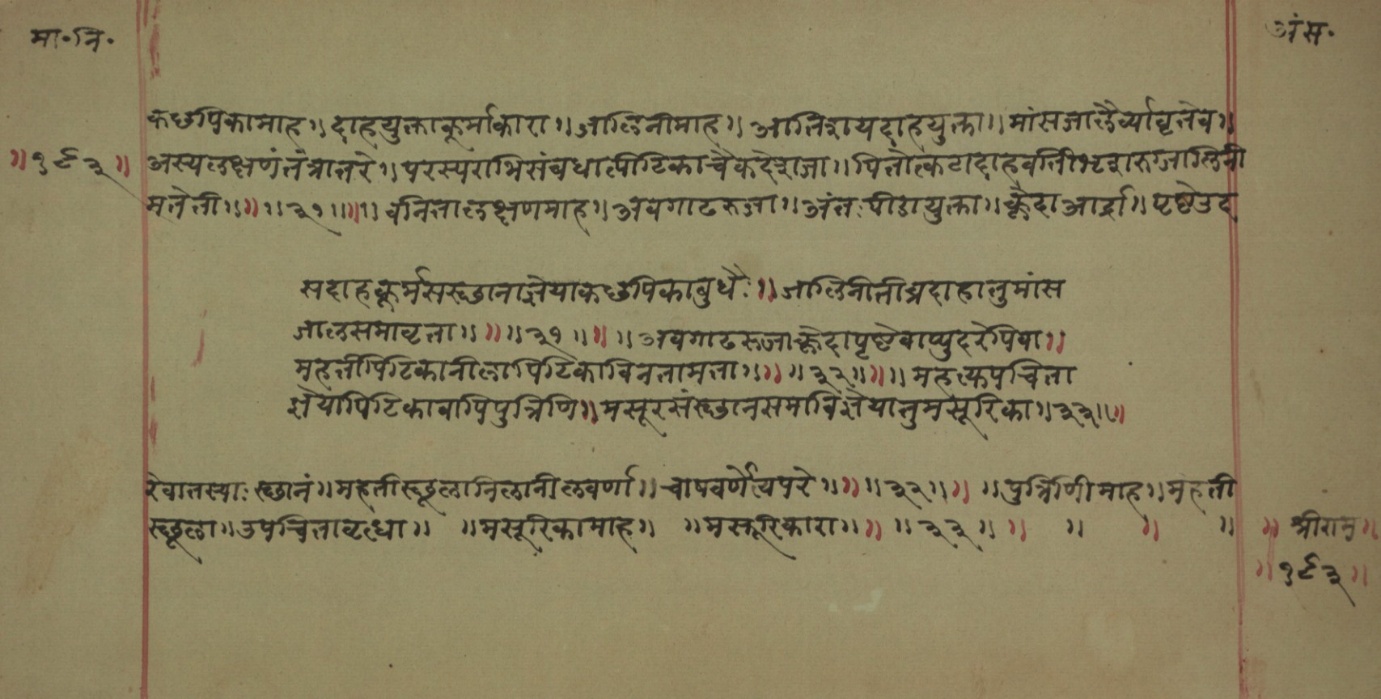 मा॰नि॰
अंस॰
कछपिकामाह॥दाहयुक्ताकूर्माकारा॥जालिनीमाह॥अतिशयदाहयुक्ता॥मांसजालैर्व्यावृतेव॥
॥१९३॥
अस्यलक्षणंतंत्रान्तरे॥परस्पराभिसंबधात्पिटिकाचैकदेशजा॥पित्तोत्कटादाहवतीभृशरुजालिनी
मतेती॥॥॥३१॥॥॥वनितालक्षणमाह॥अवगाढरुजा॥अंतःपीडायुक्ता॥क्लेदाआर्द्रा॥पृष्ठेउद
सदाहकूर्मसस्छानाज्ञेयाकछपिकाबुधैः॥जालिनीतीव्रदाहातुमांस
जालसमावृता॥॥॥३१॥॥॥अवगाढरुजाक्लेदापृष्ठेवाप्युदरेपिवा॥
महतीपिटिकानीलापिटिकाविनतामता॥॥॥३२॥॥॥महत्यपचिता
ज्ञेयापिटिकावापिपुत्रिणि॥मसूरसंस्छानसमाविज्ञेयातुमसूरिका॥३३॥॥
रेवातस्याःस्छानं॥महतीस्छूलानिलानीलवर्णा॥चाषवर्णेत्यपरे॥॥॥३२॥॥॥पुत्रिणीमाह॥महती
स्छूला॥उपचितावृत्धा॥॥मसूरिकामाह॥॥मसूरिकारा॥॥॥३३॥॥॥॥॥
॥श्रीराम॥
॥१९३॥